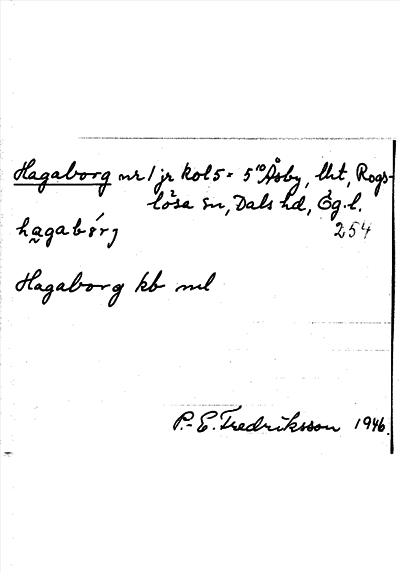 Hagaborg nr 1 jr kol 5 = 5¹⁰ Åsby, lht, Rogs-
lösa sn, Dals hd, Ög. l.
2
hagabórj 254
Hagaborg kb ml
P.-E. Fredriksson 1946.